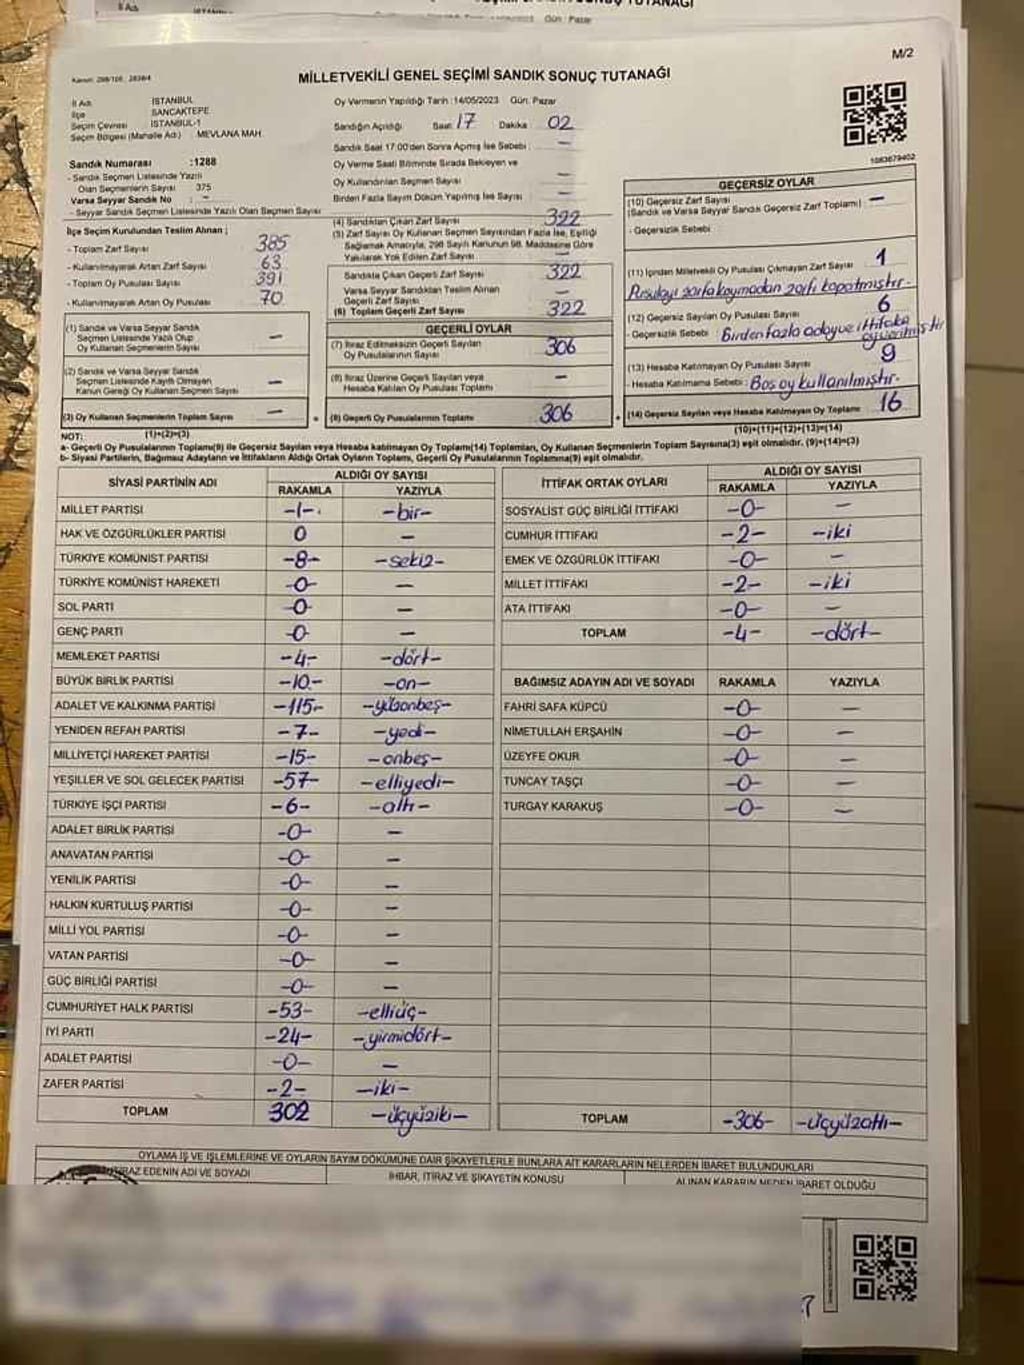 İl Adı
Gün: Pazar
M/2
Kanun: 298/105, 2839/4
MİLLETVEKİLİ GENEL SEÇİMİ SANDIK SONUÇ TUTANAĞI
İl Adı İSTANBUL
İlçe SANCAKTEPE
Seçim Çevresi İSTANBUL-1
Seçim Bölgesi (Mahalle Adı) MEVLANA MAH.
Sandık Numarası :1288
- Sandık Seçmen Listesinde Yazılı
Olan Seçmenlerin Sayısı 375
Varsa Seyyar Sandık No : -
- Seyyar Sandık Seçmen Listesinde Yazılı Olan Seçmen Sayısı
İlçe Seçim Kurulundan Teslim Alınan ;
- Toplam Zarf Sayısı 385
- Kullanılmayarak Artan Zarf Sayısı 63
- Toplam Oy Pusulası Sayısı 391
- Kullanılmayarak Artan Oy Pusulası 70
(1) Sandık ve Varsa Seyyar Sandık
Seçmen Listesinde Yazılı Olup
Oy Kullanan Seçmenlerin Sayısı —
(2) Sandık ve Varsa Seyyar Sandık
Seçmen Listesinde Kayıtlı Olmayan
Kanun Gereği Oy Kullanan Seçmenlerin Sayısı —
(3) Oy Kullanan Seçmenlerin Toplam Sayısı —
(1)+(2)=(3)
Oy Vermenin Yapıldığı Tarih :14/05/2023 Gün: Pazar
Sandığın Açıldığı Saat 17 Dakika 02
Sandık Saat 17:00'den Sonra Açılmış İse Sebebi : —
Oy Verme Saati Bitiminde Sırada Bekleyen ve
Oy Kullandırılan Seçmen Sayısı —
Birden Fazla Sayım Döküm Yapılmış İse Sayısı —
(4) Sandıktan Çıkan Zarf Sayısı 322
(5) Zarf Sayısı Oy Kullanan Seçmen Sayısından Fazla İse, Eşitliği
Sağlamak Amacıyla, 298 Sayılı Kanunun 98. Maddesine Göre
Yakılarak Yok Edilen Zarf Sayısı —
Sandıkta Çıkan Geçerli Zarf Sayısı 322
Varsa Seyyar Sandıktan Teslim Alınan
Geçerli Zarf Sayısı —
(6) Toplam Geçerli Zarf Sayısı 322
GEÇERLİ OYLAR
(7) İtiraz Edilmeksizin Geçerli Sayılan
Oy Pusulalarının Sayısı 306
(8) İtiraz Üzerine Geçerli Sayılan veya
Hesaba Katılan Oy Pusulası Toplamı —
(9) Geçerli Oy Pusulalarının Toplamı 306
1083679402
GEÇERSİZ OYLAR
(10) Geçersiz Zarf Sayısı
(Sandık ve Varsa Seyyar Sandık Geçersiz Zarf Toplamı) —
- Geçersizlik Sebebi
(11) İçinden Milletvekili Oy Pusulası Çıkmayan Zarf Sayısı 1
Pusulayı zarfa koymadan zarfı kapatmıştır.
(12) Geçersiz Sayılan Oy Pusulası Sayısı 6
- Geçersizlik Sebebi : Birden fazla adaya ve ittifaka
oy verilmiştir
(13) Hesaba Katılmayan Oy Pusulası Sayısı 9
Hesaba Katılmama Sebebi : Boş oy kullanılmıştır.
(14) Geçersiz Sayılan veya Hesaba Katılmayan Oy Toplamı 16
(10)+(11)+(12)+(13)=(14)
NOT:
a- Geçerli Oy Pusulalarının Toplamı(9) ile Geçersiz Sayılan veya Hesaba katılmayan Oy Toplamı(14) Toplamları, Oy Kullanan Seçmenlerin Toplam Sayısına(3) eşit olmalıdır. (9)+(14)=(3)
b- Siyasi Partilerin, Bağımsız Adayların ve İttifakların Aldığı Ortak Oyların Toplamı, Geçerli Oy Pusulalarının Toplamına(9) eşit olmalıdır.
SİYASİ PARTİNİN ADI ALDIĞI OY SAYISI
RAKAMLA YAZIYLA
MİLLET PARTİSİ -1- -bir-
HAK VE ÖZGÜRLÜKLER PARTİSİ 0 —
TÜRKİYE KOMÜNİST PARTİSİ -8- -sekiz-
TÜRKİYE KOMÜNİST HAREKETİ -0- —
SOL PARTİ -0- —
GENÇ PARTİ -0- —
MEMLEKET PARTİSİ -4- -dört-
BÜYÜK BİRLİK PARTİSİ -10- -on-
ADALET VE KALKINMA PARTİSİ -115- -yüzonbeş-
YENİDEN REFAH PARTİSİ -7- -yedi-
MİLLİYETÇİ HAREKET PARTİSİ -15- -onbeş-
YEŞİLLER VE SOL GELECEK PARTİSİ -57- -elliyedi-
TÜRKİYE İŞÇİ PARTİSİ -6- -altı-
ADALET BİRLİK PARTİSİ -0- —
ANAVATAN PARTİSİ -0- —
YENİLİK PARTİSİ -0- —
HALKIN KURTULUŞ PARTİSİ -0- —
MİLLİ YOL PARTİSİ -0- —
VATAN PARTİSİ -0- —
GÜÇ BİRLİĞİ PARTİSİ -0- —
CUMHURİYET HALK PARTİSİ -53- -elliüç-
İYİ PARTİ -24- -yirmidört-
ADALET PARTİSİ -0- —
ZAFER PARTİSİ -2- -iki-
TOPLAM 302 -üçyüziki-
İTTİFAK ORTAK OYLARI ALDIĞI OY SAYISI
RAKAMLA YAZIYLA
SOSYALİST GÜÇ BİRLİĞİ İTTİFAKI -0- —
CUMHUR İTTİFAKI -2- -iki
EMEK VE ÖZGÜRLÜK İTTİFAKI -0- —
MİLLET İTTİFAKI -2- -iki
ATA İTTİFAKI -0- —
TOPLAM -4- -dört-
BAĞIMSIZ ADAYIN ADI VE SOYADI RAKAMLA YAZIYLA
FAHRİ SAFA KÜPCÜ -0- —
NİMETULLAH ERŞAHİN -0- —
ÜZEYFE OKUR -0- —
TUNCAY TAŞÇI -0- —
TURGAY KARAKUŞ -0- —
TOPLAM -306- -üçyüzaltı-
OYLAMA İŞ VE İŞLEMLERİNE VE OYLARIN SAYIM DÖKÜMÜNE DAİR ŞİKAYETLERLE BUNLARA AİT KARARLARIN NELERDEN İBARET BULUNDUKLARI
İTİRAZ EDENİN ADI VE SOYADI İHBAR, İTİRAZ VE ŞİKAYETİN KONUSU ALINAN KARARIN NEDEN İBARET OLDUĞU